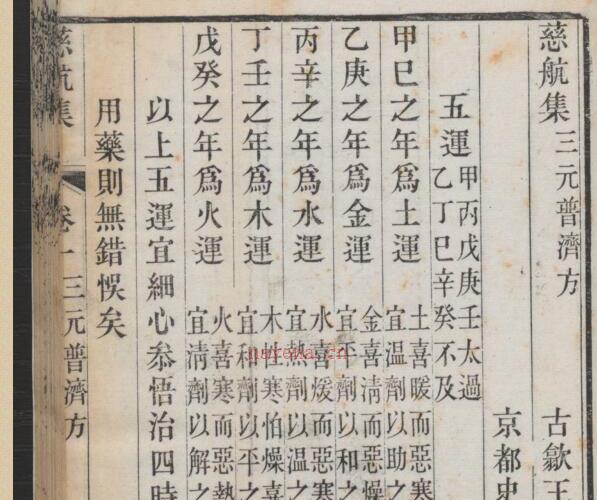 慈航集三元普濟方
古歙王
京都史
五運甲丙戊庚壬太過
乙丁巳辛癸不及
甲巳之年爲土運土喜暖而惡寒
宜溫劑以助之
乙庚之年爲金運金喜清而惡燥
宜平劑以和之
丙辛之年爲水運水喜煖而惡寒
宜熱劑以溫之
丁壬之年爲木運木性寒怕燥喜
宜和劑以平之
戊癸之年爲火運火喜寒而惡熱
宜清劑以解之
以上五運宜細心叅悟治四時
用藥則無錯悞矣
慈航集 卷一 三元普濟方